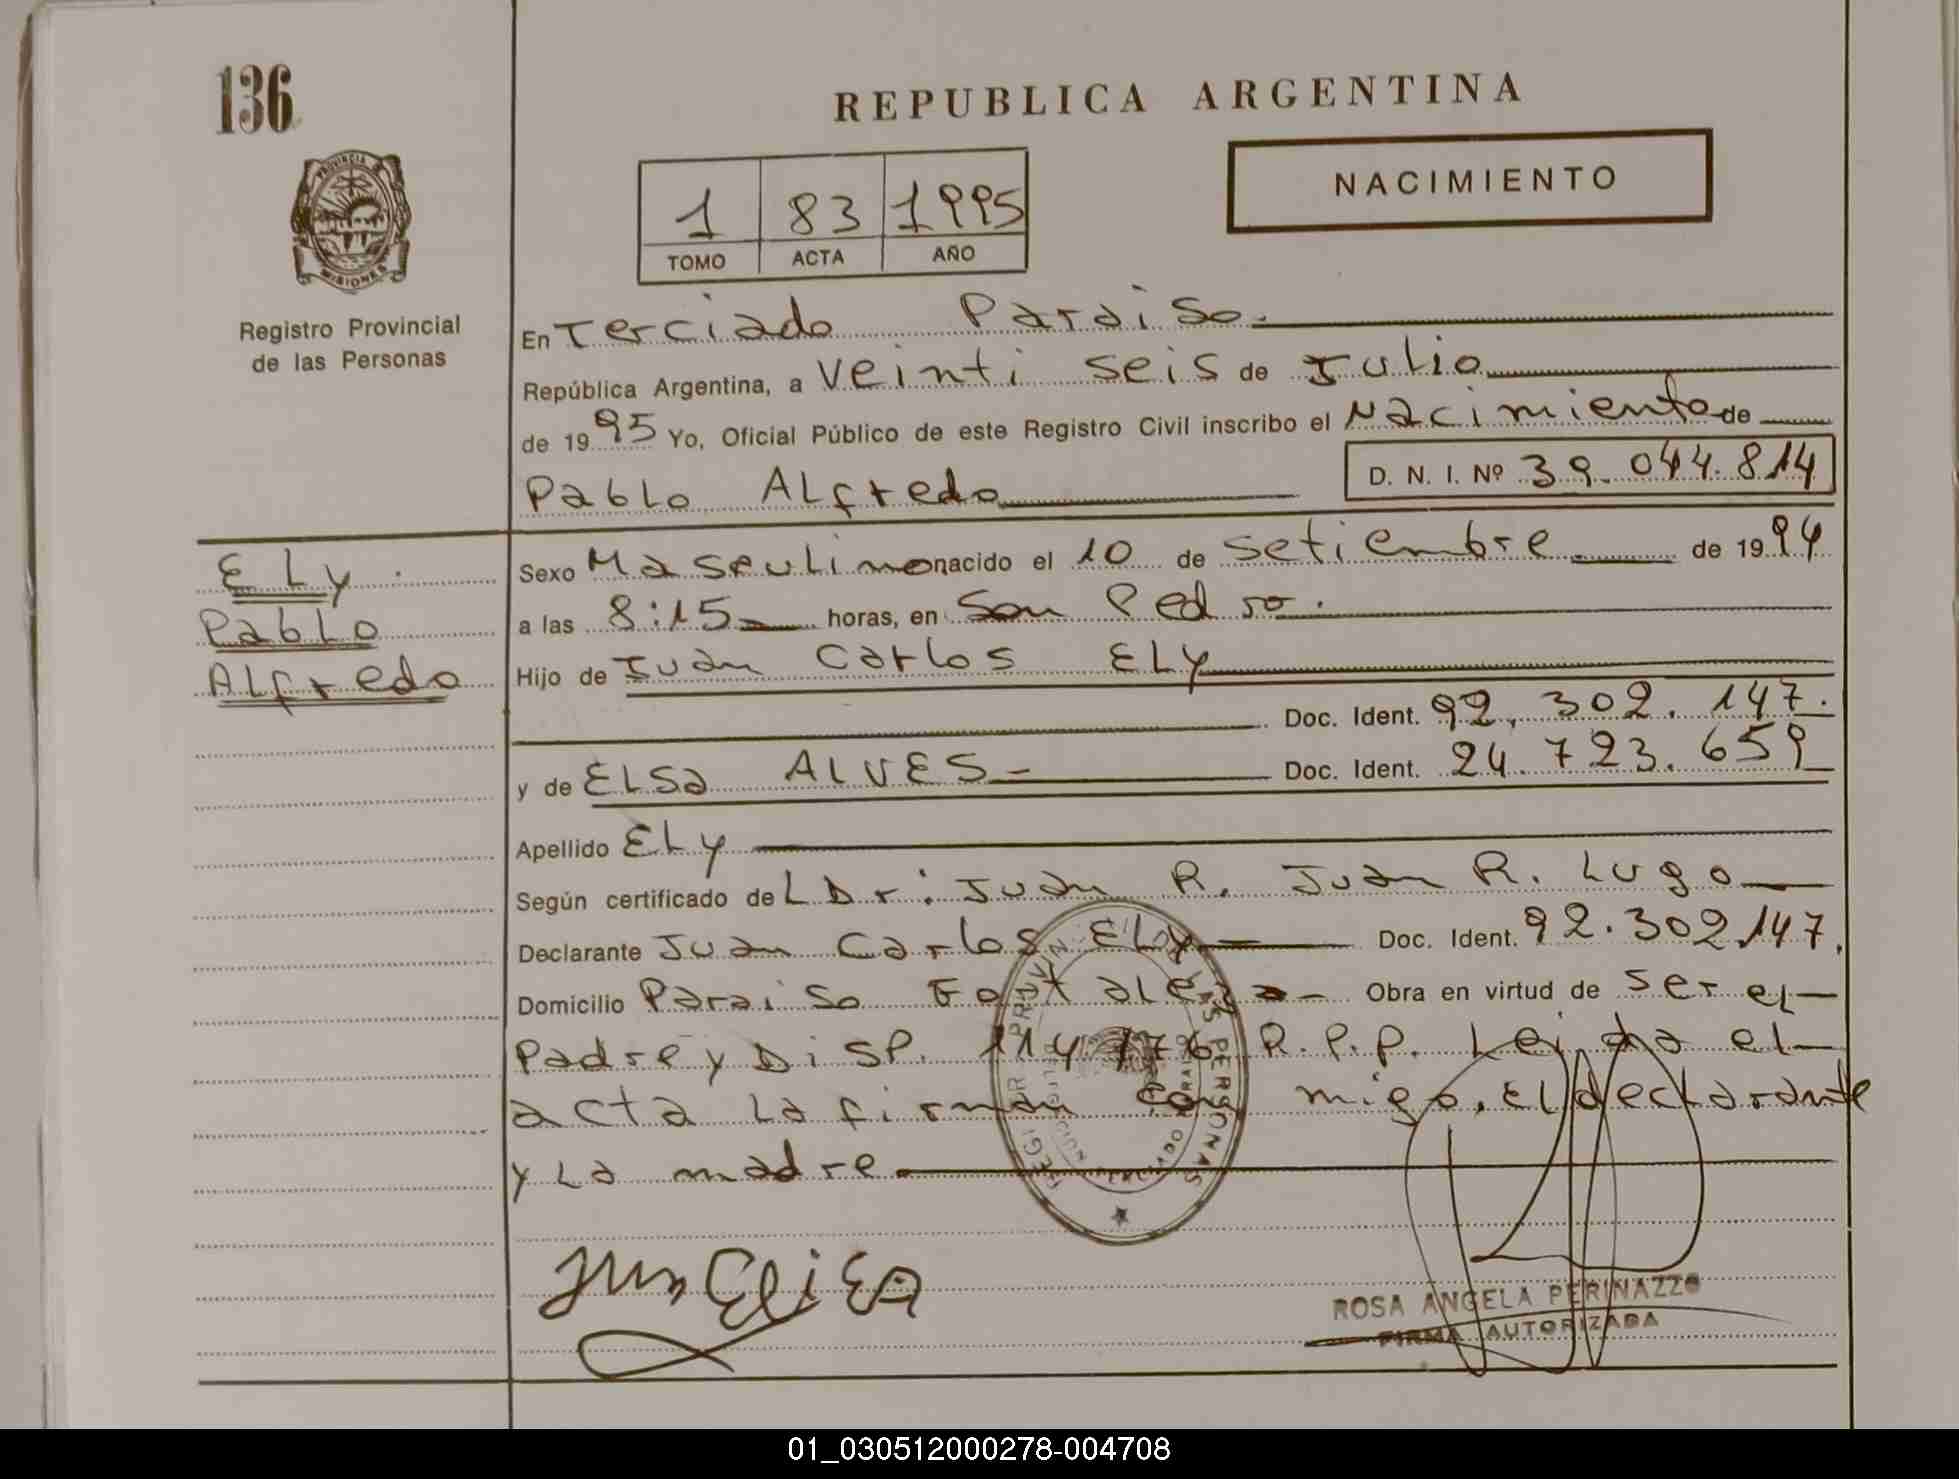 136
REPUBLICA ARGENTINA
NACIMIENTO
1 83 1995
TOMO ACTA AÑO
PROVINCIA DE
MISIONES
Registro Provincial
de las Personas
En Terciado Paraiso.
República Argentina, a Veinti seis de Julio
de 1995 Yo, Oficial Público de este Registro Civil inscribo el Nacimiento de
Pablo ALfredo D. N. I. Nº 39.044.814
ELy
Pablo
ALfredo
Sexo Masculino nacido el 10 de Setiembre de 1994
a las 8:15 horas, en San Pedro.
Hijo de Juan Carlos ELy
Doc. Ident. 92.302.147.
y de ELSa ALVES Doc. Ident. 24.723.659
Apellido ELy
Según certificado de L Dr: Juan R. Juan R. Lugo
Declarante Juan Carlos ELy Doc. Ident. 92.302.147.
Domicilio Paraiso Fortaleza Obra en virtud de Ser el
Padre y DiSP. 114.176 R.P.P. Leida el
acta La firman con migo. El declarante
y La madre
ROSA ANGELA PERINAZZO
FIRMA AUTORIZADA
01_030512000278-004708